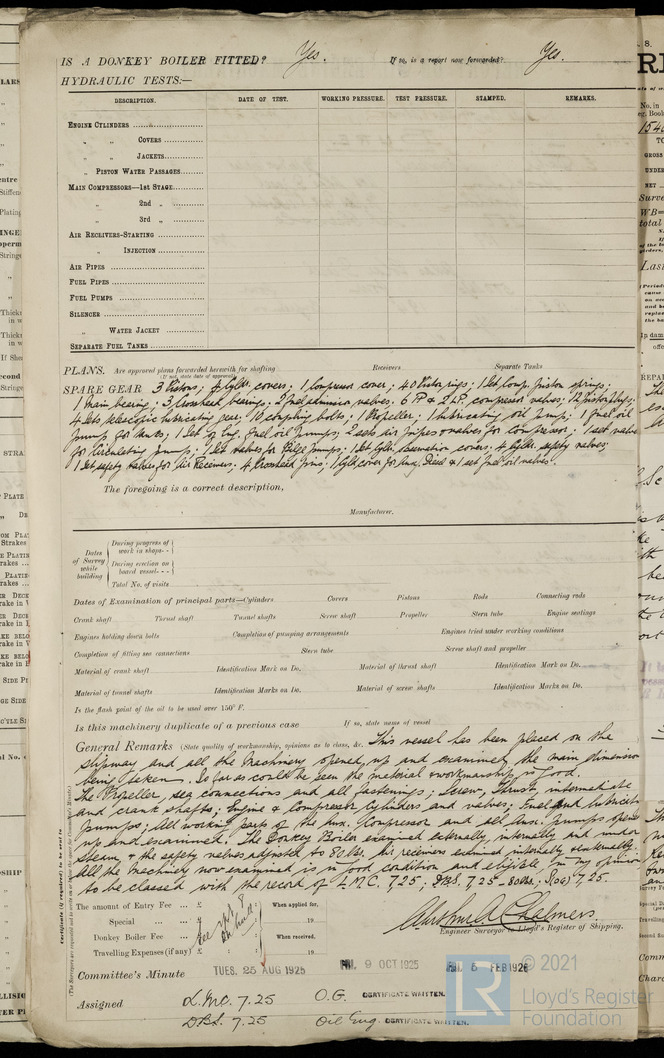 IS A DONKEY BOILER FITTED? Yes. If so, is a report now forwarded? Yes.
HYDRAULIC TESTS:—
DESCRIPTION. DATE OF TEST. WORKING PRESSURE. TEST PRESSURE. STAMPED. REMARKS.
ENGINE CYLINDERS
" " COVERS
" " JACKETS
" PISTON WATER PASSAGES
MAIN COMPRESSORS—1ST STAGE
" 2nd "
" 3rd "
AIR RECEIVERS-STARTING
" INJECTION
AIR PIPES
FUEL PIPES
FUEL PUMPS
SILENCER
" WATER JACKET
SEPARATE FUEL TANKS
PLANS. Are approved plans forwarded herewith for shafting Receivers Separate Tanks
(If not, state date of approval)
SPARE GEAR 3 Pistons; 4 cyldr. covers; 1 compressor cover; 40 Piston rings; 1 set Comp. piston springs;
1 Main bearing; 3 Crosshead bearings; 2 fuel admission valves; 6 H.P. & 2 L.P. compressor valves; 12 piston
4 sets telescopic lubricating gear; 10 coupling bolts; 1 Propeller; 1 lubricating oil pump; 1 fuel oil
pump for; 1 set of fuel oil pumps; 2 sets air pipes & valves for compressor; 1 set valves
for Circulating pump; 1 set valves for Bilge pumps; 1 set cyldr. covers; 4 cyldr. safety valves;
1 set safety valves for Air Receivers; 4 Crosshead pins; 1 cyld. cover for Aux. Diesel & 1 set fuel oil valves.
The foregoing is a correct description,
Manufacturer.
Dates of Survey while building
During progress of work in shops - -
During erection on board vessel - - -
Total No. of visits
Dates of Examination of principal parts—Cylinders Covers Pistons Rods Connecting rods
Crank shaft Thrust shaft Tunnel shafts Screw shaft Propeller Stern tube Engine seatings
Engines holding down bolts Completion of pumping arrangements Engines tried under working conditions
Completion of fitting sea connections Stern tube Screw shaft and propeller
Material of crank shaft Identification Mark on Do. Material of thrust shaft Identification Mark on Do.
Material of tunnel shafts Identification Marks on Do. Material of screw shafts Identification Marks on Do.
Is the flash point of the oil to be used over 150° F.
Is this machinery duplicate of a previous case If so, state name of vessel
General Remarks (State quality of workmanship, opinions as to class, &c. This vessel has been placed on the
slipway and all the machinery opened up and examined, the main dimensions
being taken. So far as could be seen the material & workmanship is good.
The Propeller, sea connections and all fastenings; Screw, Thrust, intermediate
and crank shafts; Engine & Compressor Cylinders and valves; Fuel and lubricating
pumps; All working parts of the Aux. Compressor and all Aux. pumps opened
up and examined. The Donkey Boiler examined externally, internally and under
steam, & the safety valves adjusted to 80 lbs. Air receivers examined internally & externally.
All the machinery now examined is in good condition and eligible in my opinion
to be classed with the record of L.M.C. 7.25; D.B.S. 7.25 - 80 lbs; S.(OG) 7.25.
Certificate (if required) to be sent to
(The Surveyors are requested not to write on or below the space for Committee's Minute.)
The amount of Entry Fee .. £ : : When applied for,
Special ... ... £ : : 19
Donkey Boiler Fee ... £ : : When received,
Travelling Expenses (if any) £ : : 19
Arthur A. Chalmers.
Engineer Surveyor to Lloyd's Register of Shipping.
Committee's Minute TUES. 25 AUG 1925 FRI. 9 OCT 1925 FRI. 5 FEB 1926
Assigned L.M.C. 7.25 O.G. CERTIFICATE WRITTEN.
D.B.S. 7.25 Oil Eng. CERTIFICATE WRITTEN.
© 2021
LR Lloyd's Register
Foundation